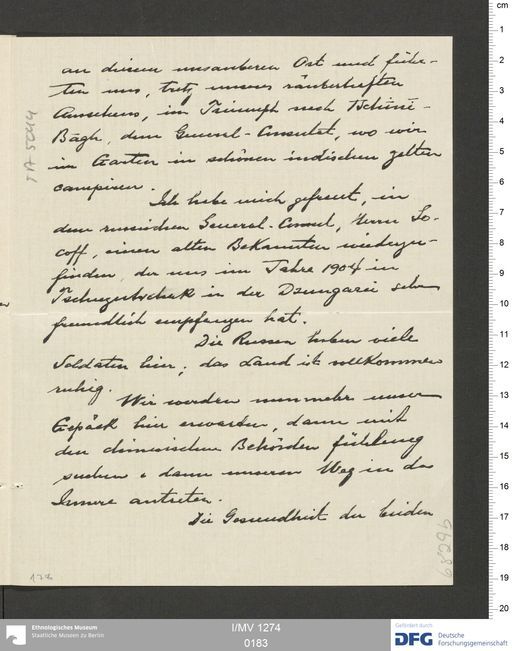 an diesen unsauberen Ort und führ-
ten uns, trotz unseres räuberhaften
Aussehens, im Triumph nach Tschini-
Bāgh, dem General-Consulat, wo wir
im Garten in schönen indischen Zelten
campiren.
Ich habe mich gefreut, in
dem russischen General-Consul, Herrn So-
coff, einen alten Bekannten wiederzu-
finden, der uns im Jahre 1904 in
Tschugutschak in der Dzungarei sehr
freundlich empfangen hat.
Die Russen haben viele
Soldaten hier; das Land ist vollkommen
ruhig.
Wir werden nunmehr unser
Gepäck hier erwarten, dann mit
den chinesischen Behörden Fühlung
suchen & dann unseren Weg in das
Innere antreten.
Die Gesundheit der beiden
Ethnologisches Museum
Staatliche Museen zu Berlin
I/MV 1274
0183
Gefördert durch
DFG
Deutsche
Forschungsgemeinschaft
cm
1
2
3
4
5
6
7
8
9
10
11
12
13
14
15
16
17
18
19
20